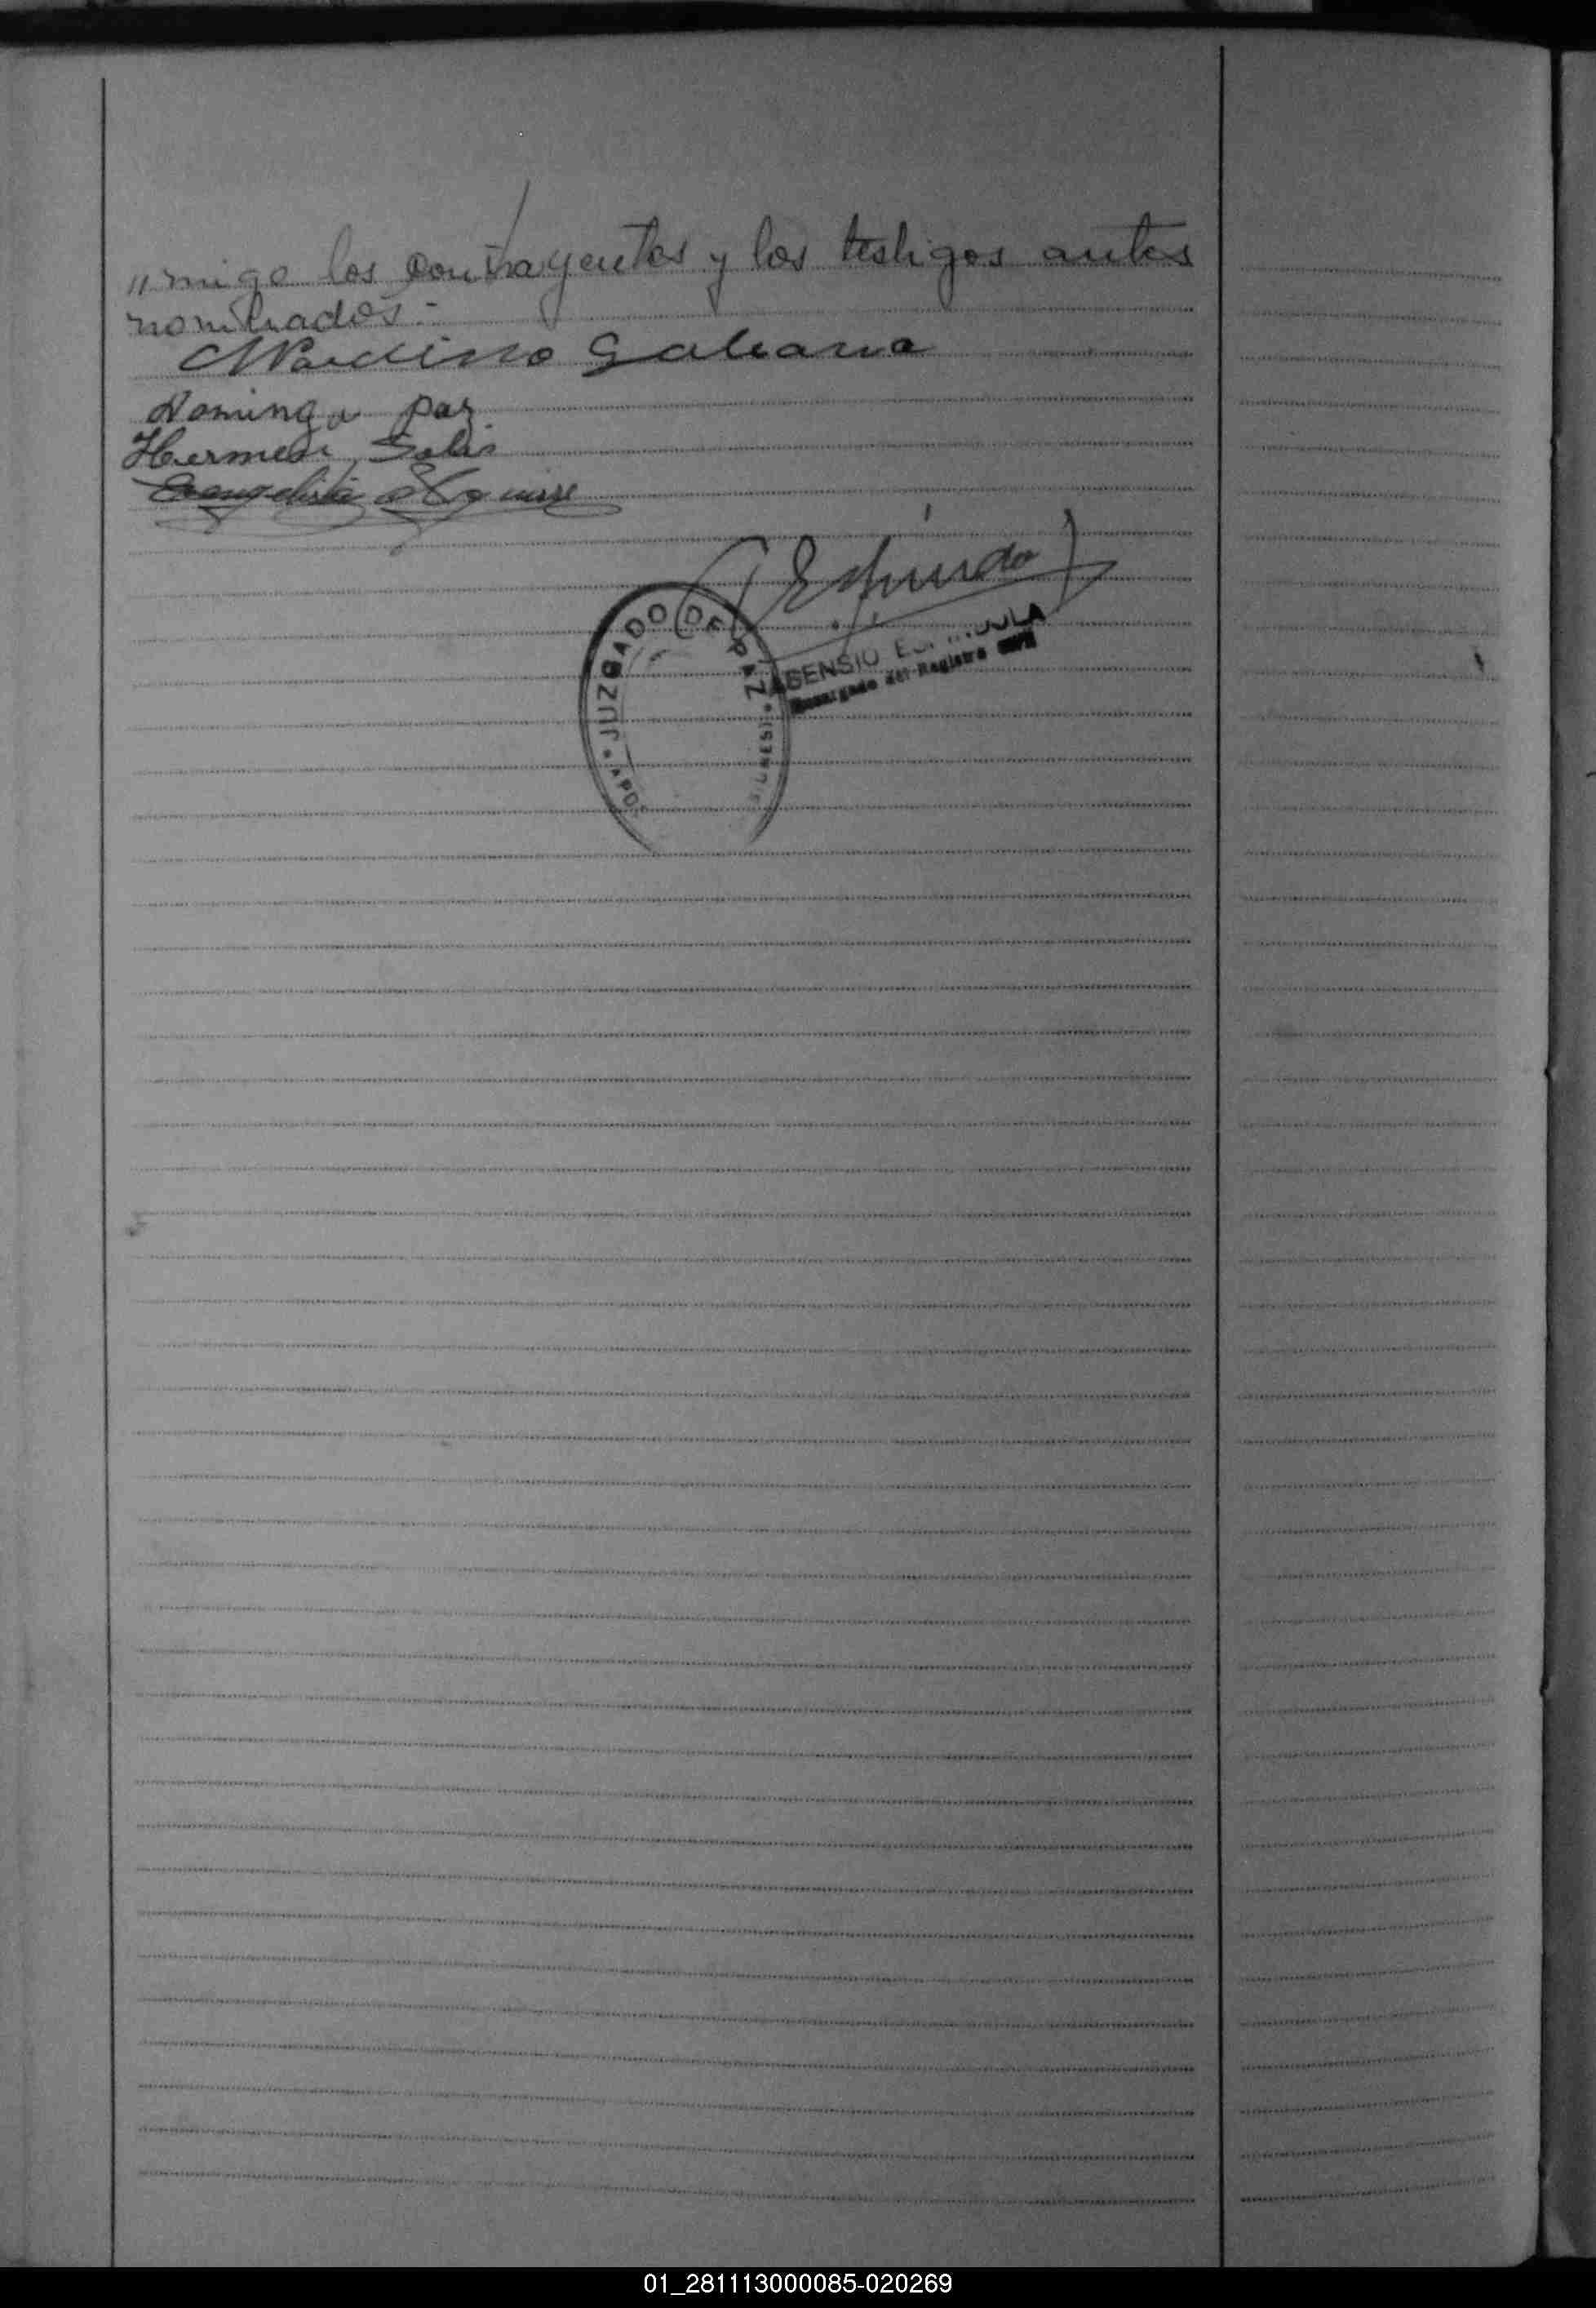 "migo los contrayentes y los testigos antes
nombrados.-
Narciso Galeano
Dominga paz
Hermes Solis
Evangelista
JUZGADO DE PAZ
ASENSIO
Encargado del Registro Civil
01_281113000085-020269